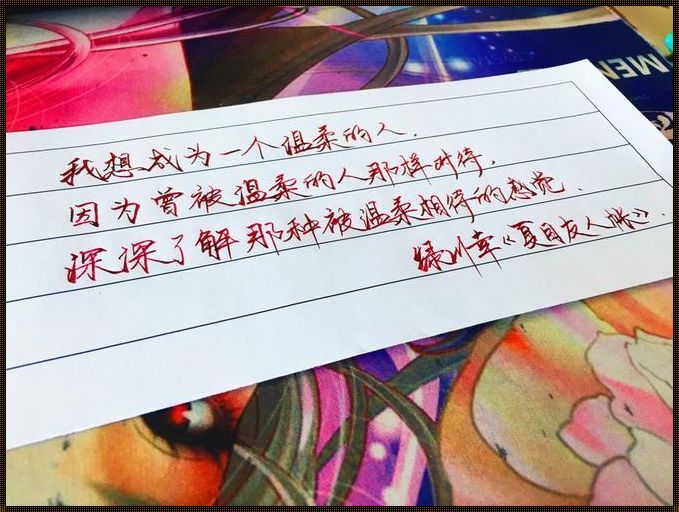 MEN
我想成为一个温柔的人.
因为曾被温柔的人那样对待.
深深了解那种被温柔相待的感觉.
绿川幸《夏目友人帐》.